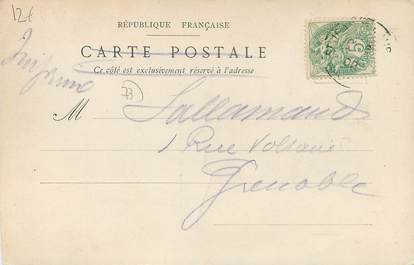 12€
RÉPUBLIQUE FRANÇAISE
CARTE POSTALE
Ce côté est exclusivement réservé à l'adresse
Imprimé
73
M Sallamand
1 Rue Voltaire
Grenoble
5